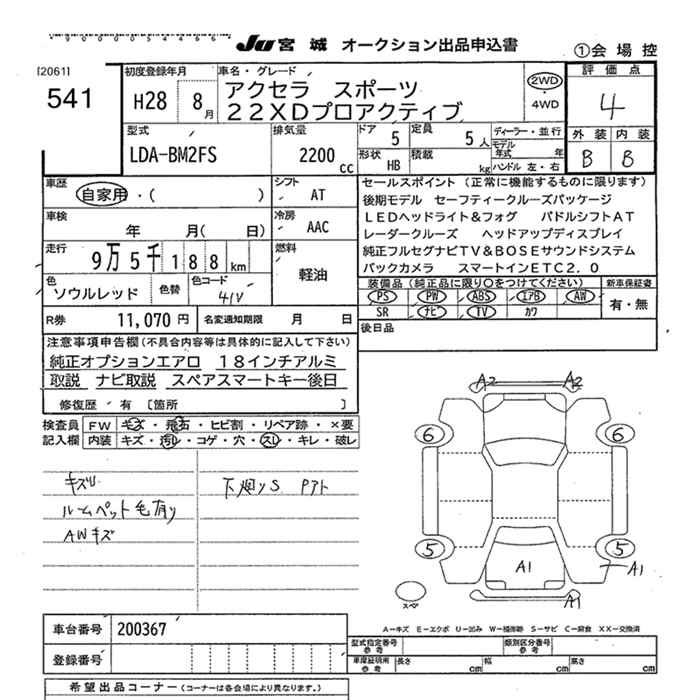 JU 宮城 オークション出品申込書 ①会場控
[2061]
541
初度登録年月 H28 8月
車名・グレード アクセラ スポーツ
22XDプロアクティブ
2WD・4WD
評価点 4
外装 B 内装 B
型式 LDA-BM2FS
排気量 2200cc
ドア 5 定員 5人
形状 HB 積載 kg
ディーラー・並行
モデル年式 年
ハンドル 左・右
車歴 自家用・( )
シフト AT
車検 年 月( 日)
冷房 AAC
走行 9万5千188km
燃料 軽油
色 ソウルレッド 色替 色コード 41V
R券 11,070円 名変通知期限 月 日
セールスポイント (正常に機能するものに限ります)
後期モデル セーフティークルーズパッケージ
LEDヘッドライト&フォグ パドルシフトAT
レーダークルーズ ヘッドアップディスプレイ
純正フルセグナビTV&BOSEサウンドシステム
バックカメラ スマートインETC2.0
装備品(純正品に限り○をつけてください) 新車保証書
PS PW ABS エアB AW 有・無
SR ナビ TV カワ
後日品
注意事項申告欄(不具合内容等は具体的に記入して下さい)
純正オプションエアロ 18インチアルミ
取説 ナビ取説 スペアスマートキー後日
修復歴・有 [箇所 ]
検査員 FW キズ・飛石・ヒビ割・リペア跡・×要
記入欄 内装 キズ・汚レ・コゲ・穴・スレ・キレ・破レ
キズU
ルームペット毛有り
AWキズ
A2 A2
6 6
5 5
A1 A1
A1
スペア
A−キズ E−エクボ U−凹み W−補修跡 S−サビ C−腐食 XX−交換済
車台番号 200367
登録番号
型式指定番号 参考 類別区分番号 参考
車庫証明用 参考 長さ cm 幅 cm 高さ cm
希望出品コーナー(コーナーは各会場により異なります。)